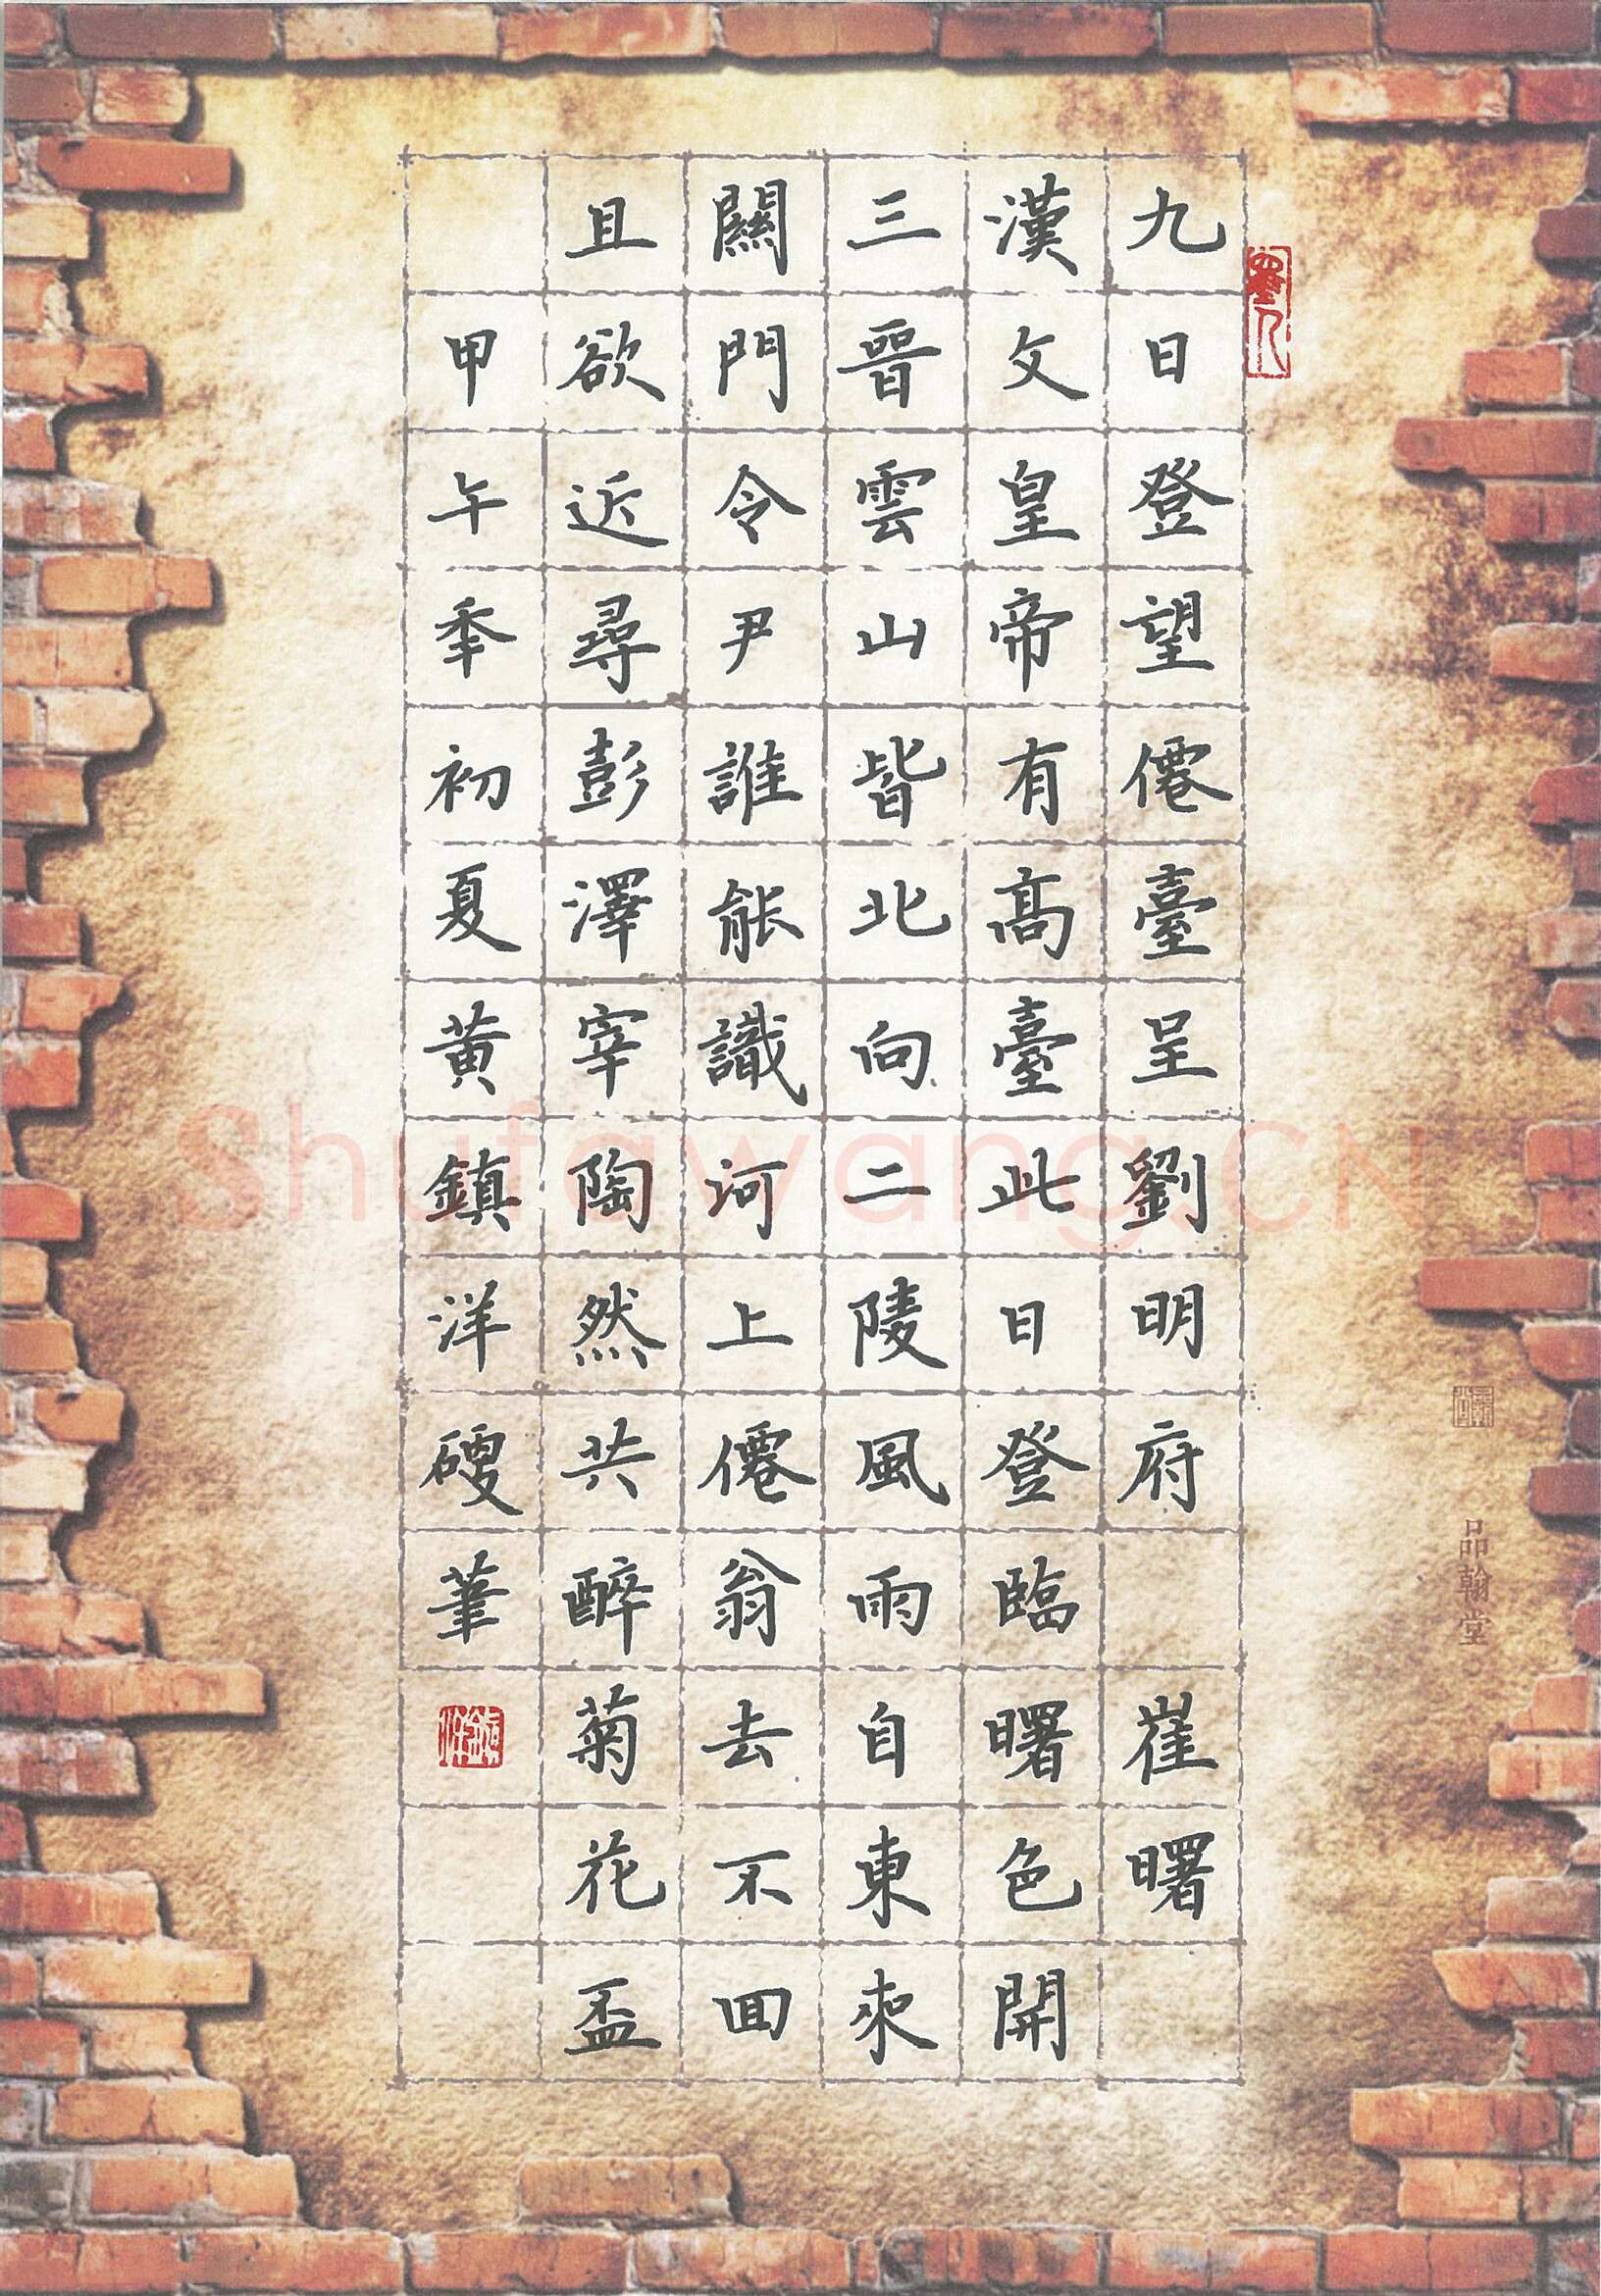 九日登望僊臺呈劉明府 崔曙
漢文皇帝有高臺此日登臨曙色開
三晉雲山皆北向二陵風雨自東來
關門令尹誰能識河上僊翁去不回
且欲近尋彭澤宰陶然共醉菊花盃
甲午季初夏黄鎮洋硬筆
品翰堂
Shufawang.CN